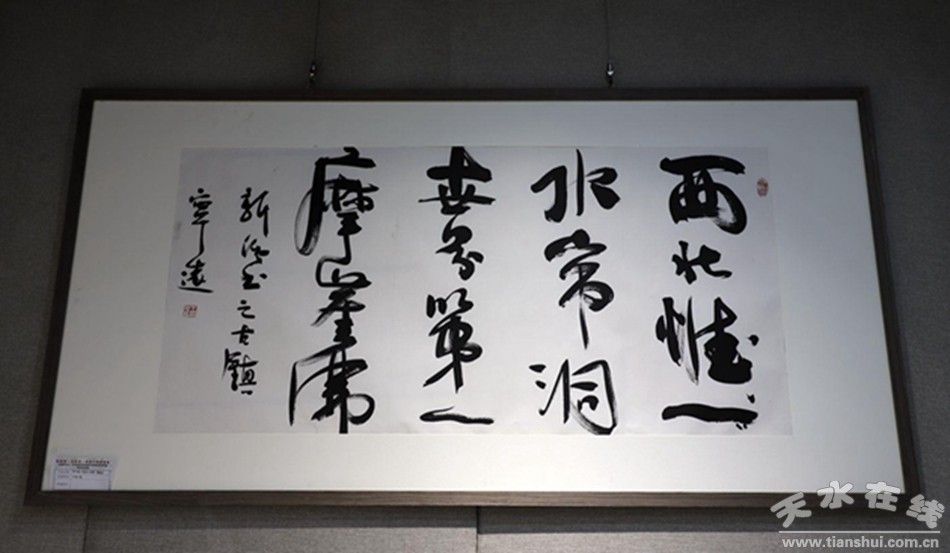 西北惟一
水帘洞
世界第一
摩崖佛
新 书之古鎮
寧遠
天水在线
www.tianshui.com.cn